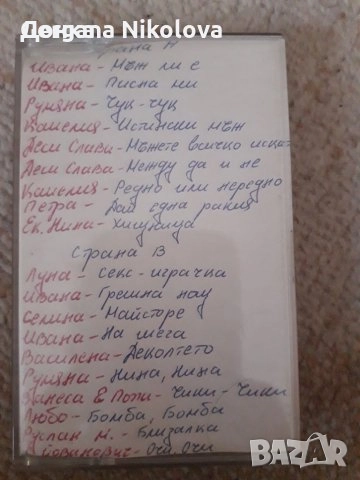 Гергана Nikolova
Страна А
Ивана - Мъж ли е
Ивана - Писна ми
Румяна - Чук-чук
Камелия - Истински мъж
Деси Слава - Мъжете всичко искат
Деси Слава - Между да и не
Камелия - Редно или нередно
Петра - Дай една ракия
Ек. Нина - Хищница
Страна В
Луна - Секс-играчка
Ивана -
Селина - Майсторе
Ивана - На шега
Василена - Деколтето
Румяна - Нина, Нина
Ванеса & Попи - Чики - Чики
Любо - Бомба, Бомба
Руслан М. - Близалка
Йованович - Очи, Очи
BAZAR
bg